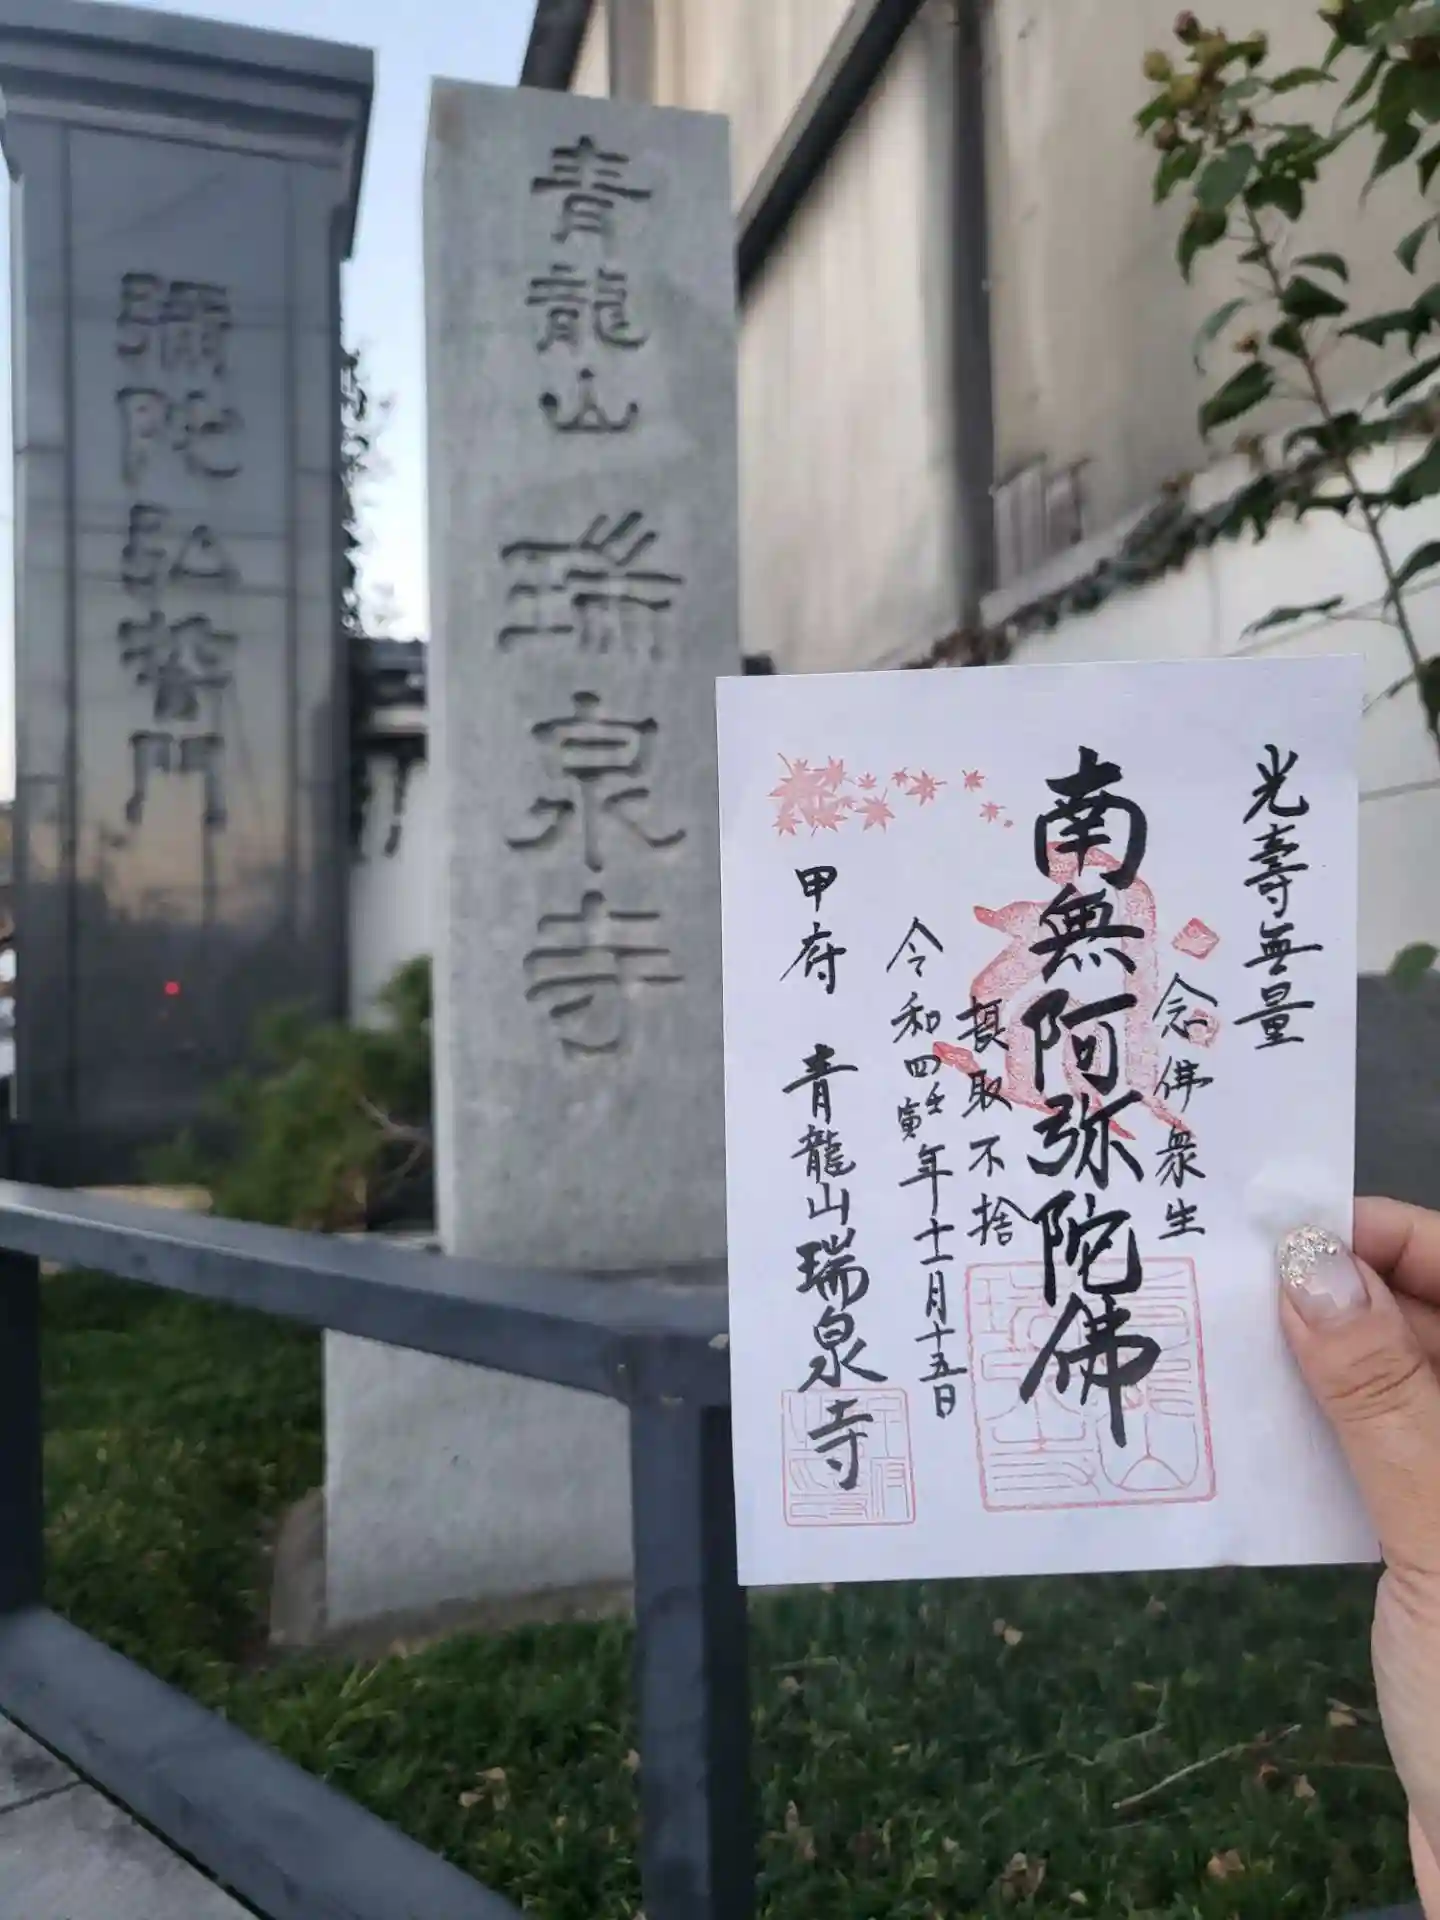 彌陀弘誓門
青龍山 瑞泉寺
光壽無量
念佛衆生
南無阿弥陀佛
摂取不捨
令和四壬寅年十一月十五日
甲府 青龍山瑞泉寺